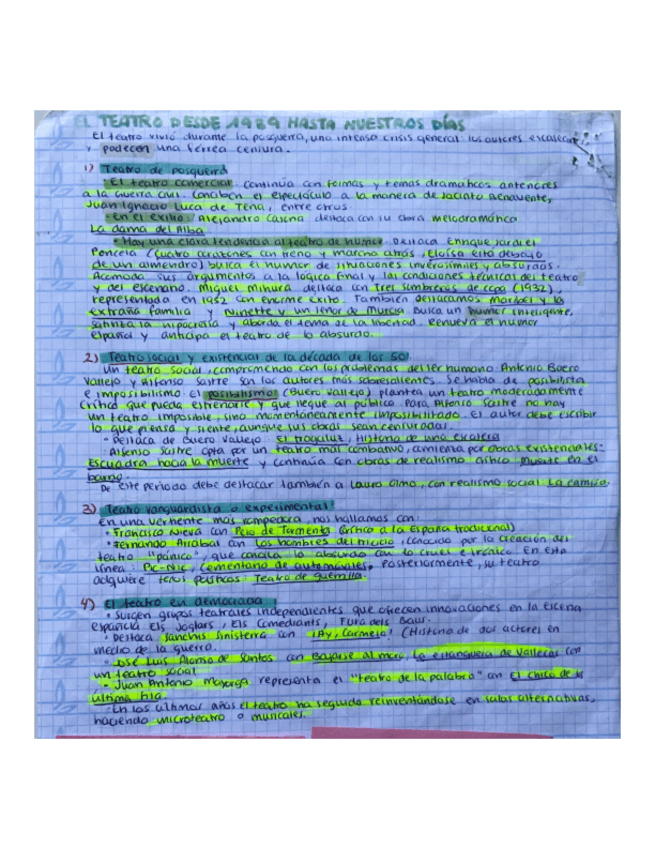 EL TEATRO DESDE 1989 HASTA NUESTROS DÍAS
El teatro vivió durante la posguerra, una intensa crisis general. los autores escasean
y padecen una férrea censura.
1) Teatro de posguerra
• El teatro comercial continúa con formas y temas dramáticos anteriores
a la Guerra Civil. Conciben el espectáculo a la manera de Jacinto Benavente,
Juan Ignacio Luca de Tena, entre otros.
• En el exilio, Alejandro Casona destaca con su obra melodramática
La dama del Alba
• Hay una clara tendencia al teatro de humor. Destaca Enrique Jardiel
Poncela (Cuatro corazones con freno y marcha atrás, Eloísa está debajo
de un almendro) busca el humor de situaciones inverosímiles y absurdas.
Acomoda sus argumentos a la lógica final y las condiciones técnicas del teatro
y del escenario. Miguel Mihura destaca con Tres sombreros de copa (1932),
representada en 1952 con enorme éxito. También destacamos Maribel y la
extraña familia y Ninette y un señor de Murcia. Busca un humor inteligente,
satiriza la hipocresía y aborda el tema de la libertad. Renueva el humor
español y anticipa el teatro de lo absurdo.
2) Teatro social y existencial de la década de los 50.
Un teatro social, comprometido con los problemas del ser humano. Antonio Buero
Vallejo y Alfonso Sastre son los autores más sobresalientes. Se habla de posibilista
e imposibilismo. El posibilismo (Buero Vallejo) plantea un teatro moderadamente
crítica que pueda estrenarse y que llegue al público. Para Alfonso Sastre no hay
un teatro imposible sino momentáneamente imposibilitado. El autor debe escribir
lo que piensa y siente, aunque sus obras sean censuradas.
• Destaca de Buero Vallejo El tragaluz, Historia de una escalera
• Alfonso Sastre opta por un teatro más combativo, comienza por obras existenciales-
Escuadra hacia la muerte y continúa con obras de realismo crítico: Muerte en el
barrio.
De este período debe destacar también a Lauro Olmo, con realismo social La camisa.
3) Teatro vanguardista o experimental
En una vertiente más rompedora, nos hallamos con:
• Francisco Nieva con Pelo de Tormenta (crítica a la España tradicional)
• Fernando Arrabal con Los hombres del triciclo, conocido por la creación del
teatro "pánico", que concilia lo absurdo con lo cruel e irónico. En esta
línea: Pic-Nic, Cementerio de automóviles. Posteriormente, su teatro
adquiere tonos políticos: Teatro de guerrilla.
4) El teatro en democracia
• Surgen grupos teatrales independientes que ofrecen innovaciones en la escena
española Els Joglars, Els Comediants, Fura dels Baus.
• Destaca Sanchis Sinisterra con ¡Ay, Carmela! (Historia de dos actores en
medio de la guerra.
• José Luis Alonso de Santos con Bajarse al moro, La estanquera de Vallecas con
un teatro social
• Juan Antonio Mayorga representa el "teatro de la palabra" con El chico de la
última fila.
• En los últimos años el teatro ha seguido reinventándose en salas alternativas,
haciendo microteatro o musicales.